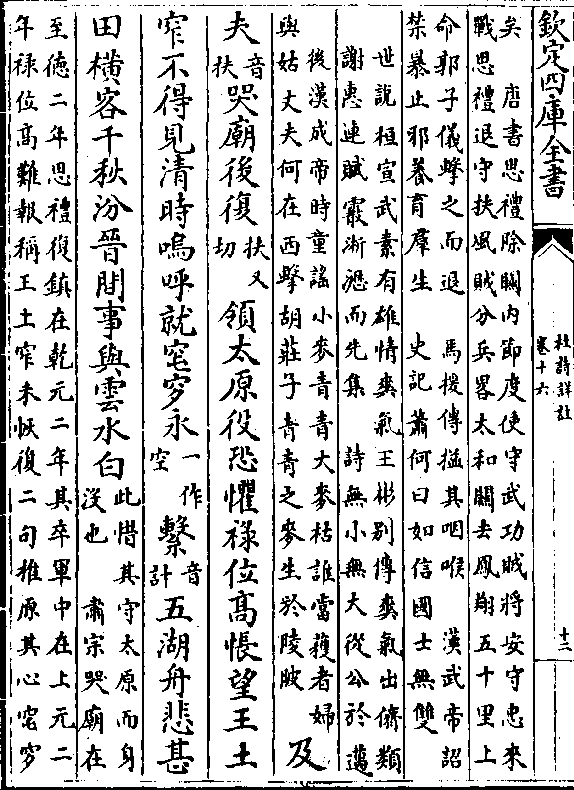 欽定四庫全書
杜詩詳註
卷十六
十三
矣　唐書思禮除關內節度使守武功賊將安守忠來
戰思禮退守扶風賊分兵畧太和關去鳳翔五十里上
命郭子儀擊之而退　馬援傳搤其咽喉　漢武帝詔
禁暴止邪養育羣生　史記蕭何曰如信國士無雙
世說桓宣武素有雄情爽氣王彬別傳爽氣出儕類
謝惠連賦霰淅瀝而先集　詩無小無大從公於邁
後漢成帝時童謠小麥青青大麥枯誰當穫者婦
與姑丈夫何在西擊胡莊子青青之麥生於陵陂　及
夫音扶哭廟後復扶又切領太原役恐懼祿位高悵望王土
窄不得見清時嗚呼就窀穸永一作空繫音計五湖舟悲甚
田橫客千秋汾晉間事與雲水白此惜其守太原而身沒也　肅宗哭廟在
至德二年思禮復鎮在乾元二年其卒軍中在上元二
年祿位高難報稱王土窄未恢復二句推原其心窀穸